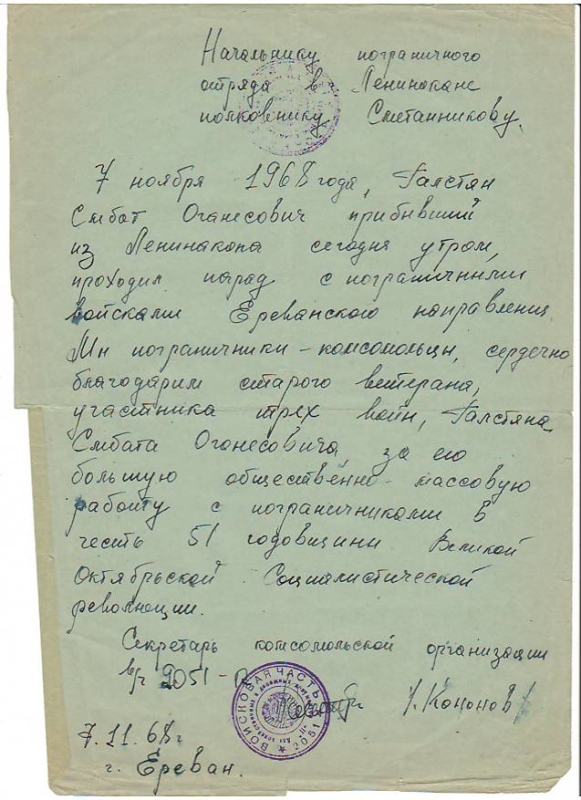 Начальнику пограничного
отряда в Ленинакане
полковнику Сметанникову.
7 ноября 1968 года, Галстян
Смбат Оганесович прибывший
из Ленинакана сегодня утром,
проходил парад с пограничными
войсками Ереванского направлениц.
Мы пограничники-комсомольцы, сердечно
благодарим старого ветерана,
участника трех войн, Галстяна
Смбата Оганесовича, за его
большую общественно массовую
работу с пограничниками в
честь 51 годовщины Великой
Октябрьской Социалистической
революции.
Секретарь комсомольской организации
в/ч 2051
/Кононов/
ВОЙСКОВАЯ ЧАСТЬ 2051
7.11.68г
г. Ереван.